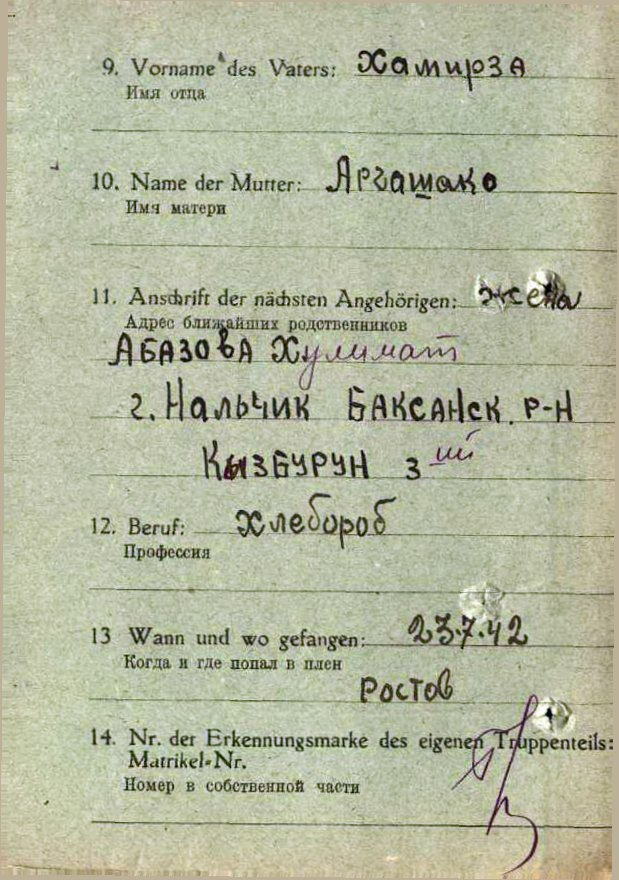 9. Vorname des Vaters: Хамирза
Имя отца
10. Name der Mutter: Аргашако
Имя матери
11. Anschrift der nächsten Angehörigen: жена
Адрес ближайших родственников
Абазова Хулимат
г. Нальчик Баксанск. р-н
Кызбурун 3 ий
12. Beruf: Хлебороб
Профессия
13 Wann und wo gefangen: 23.7.42
Когда и где попал в плен
Ростов
14. Nr. der Erkennungsmarke des eigenen Truppenteils:
Matrikel-Nr.
Номер в собственной части